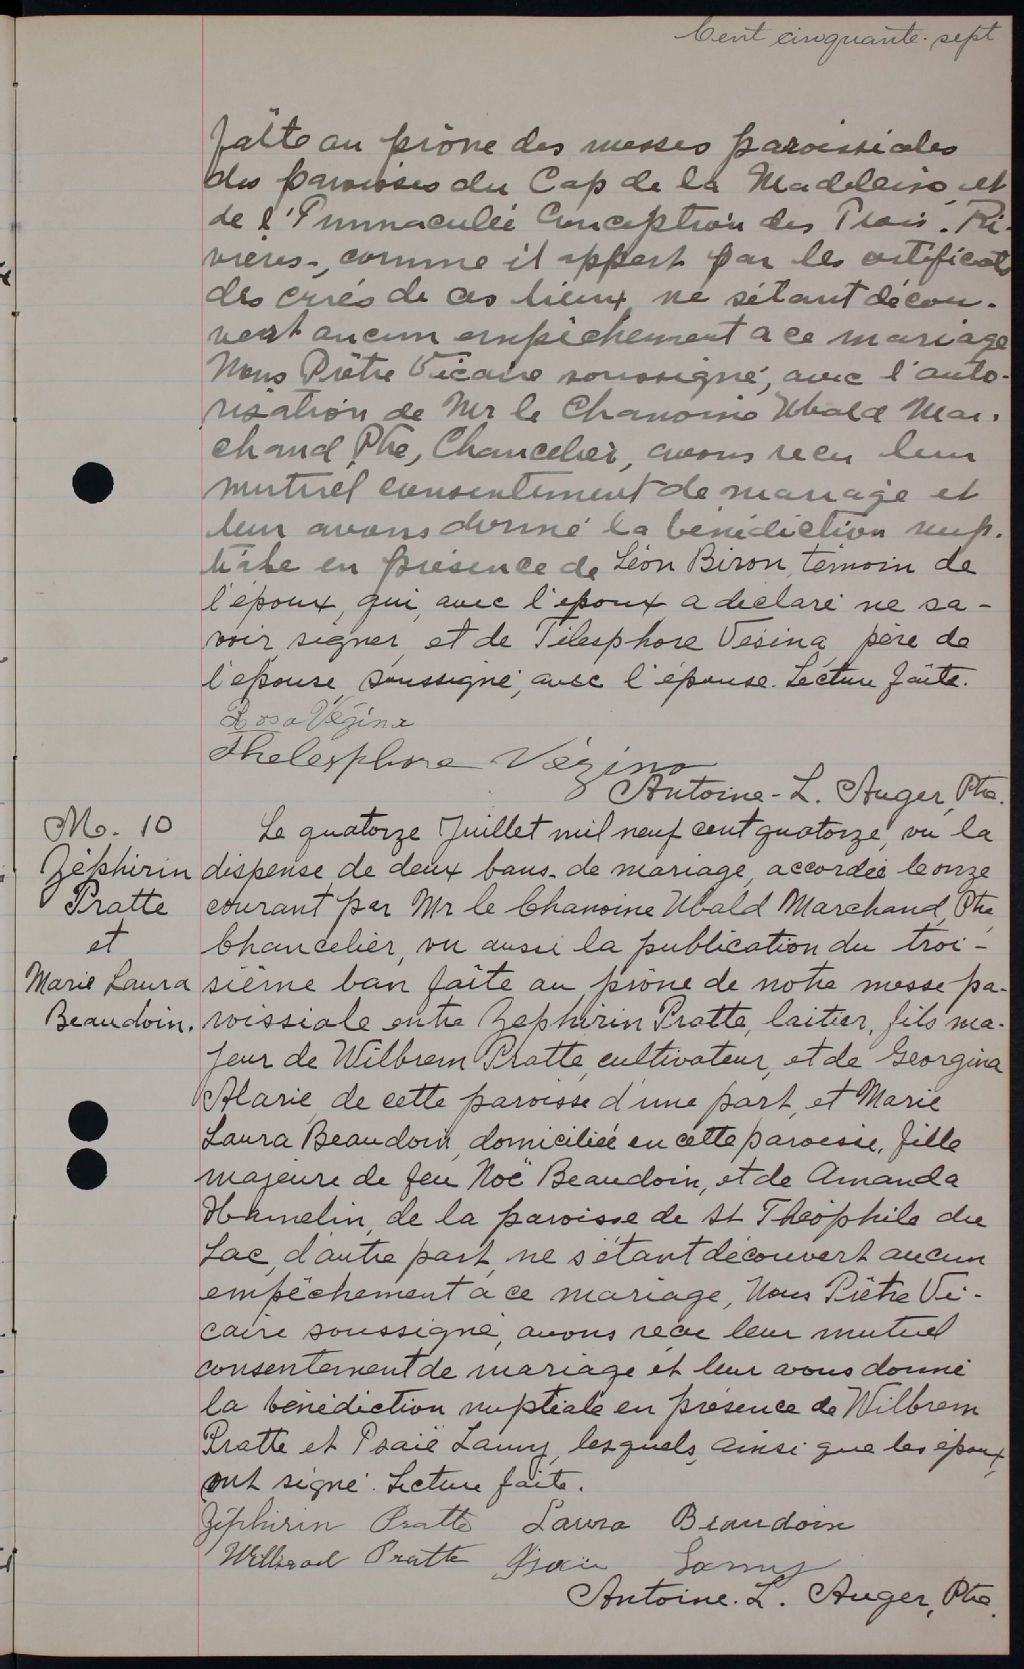 Cent cinquante-sept
faîte au prône des messes paroissiales
des paroisses du Cap de la Madeleine, et
de l'Immaculée Conception des Trois-Ri-
vières, comme il appert par les certificats
des curés de ces lieux, ne s'étant décou-
vert aucun empêchement à ce mariage
Nous Prêtre Vicaire soussigné, avec l'auto-
risation de Mr le Chanoine Ubald Mar-
chand, Ptre, Chancelier, avons recu leur
mutuel consentement de mariage et
leur avons donné la bénédiction nup-
tiale en présence de Léon Biron, témoin de
l'époux, qui, avec l'époux a déclaré ne sa-
voir signer, et de Télesphore Vésina, père de
l'épouse, soussigné, avec l'épouse. Lecture faite.
Rosa Vézina
Thelesphore Vézina
Antoine-L. Auger, Ptre.
M. 10
Zéphirin
Pratte
et
Marie Laura
Beaudoin.
Le quatorze Juillet mil neuf cent quatorze, vu la
dispense de deux bans de mariage, accordée le onze
courant par Mr le Chanoine Ubald Marchand, Ptre,
Chancelier, vu aussi la publication du troi-
sième ban faîte au prône de notre messe pa-
roissiale entre Zéphirin Pratte, laitier, fils ma-
jeur de Wilbrem Pratte, cultivateur, et de Georgina
Alarie, de cette paroisse d'une part, et Marie
Laura Beaudoin, domiciliée en cette paroisse, fille
majeure de feu Noë Beaudoin, et de Amanda
Hamelin, de la paroisse de St Théophile du
Lac, d'autre part, ne s'étant découvert aucun
empêchement à ce mariage, Nous Prêtre Vi-
caire soussigné, avons recu leur mutuel
consentement de mariage et leur avons donné
la bénédiction nuptiale en présence de Wilbrem
Pratte et Isaïe Lamy, lesquels, ainsi que les époux,
ont signé. Lecture faite.
Zéphirin Pratte Laura Beaudoin
Pratte Isaïe Lamy
Antoine. L. Auger, Ptre.